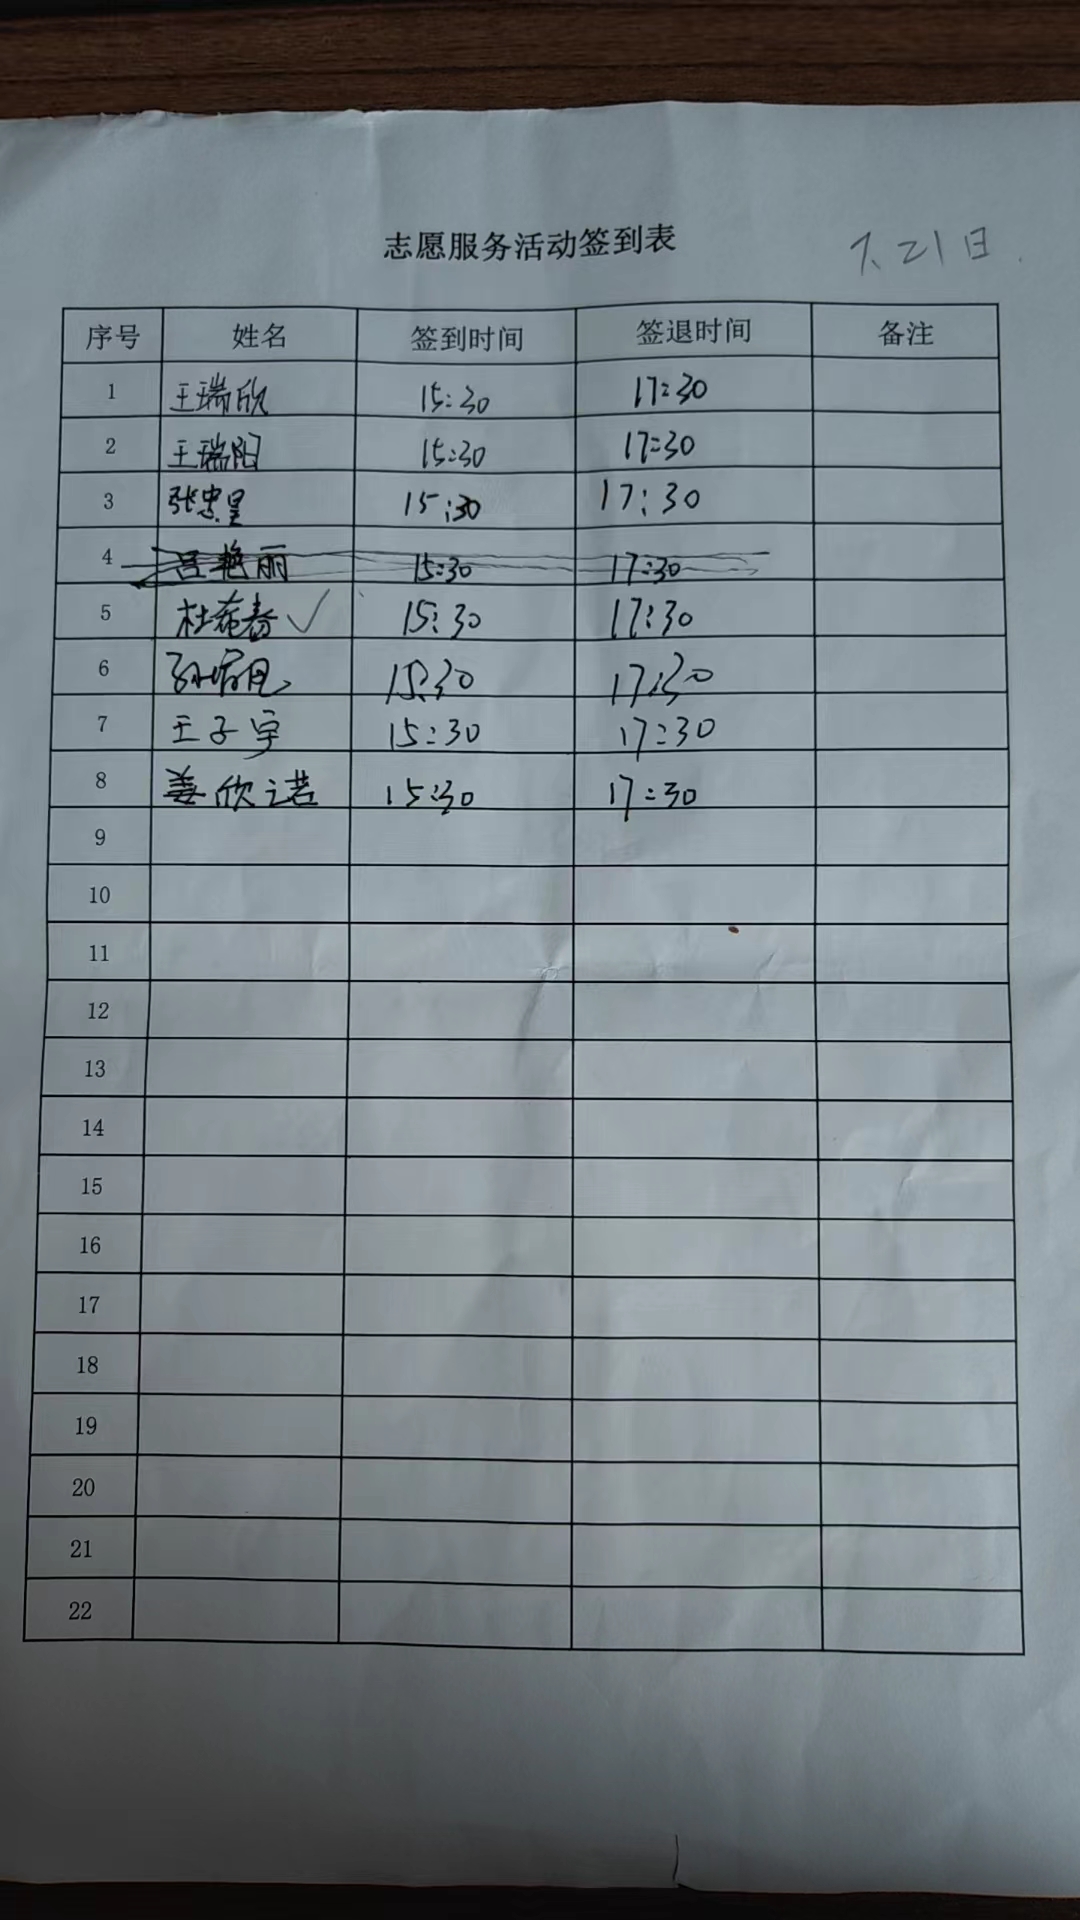 志愿服务活动签到表
7.21日
序号 姓名 签到时间 签退时间 备注
1 王瑞欣 15:30 17:30
2 王瑞阳 15:30 17:30
3 张忠星 15:30 17:30
4 吕艳丽 15:30 17:30
5 15:30 17:30
6 15:30 17:30
7 王子宇 15:30 17:30
8 姜欣诺 15:30 17:30
9
10
11
12
13
14
15
16
17
18
19
20
21
22